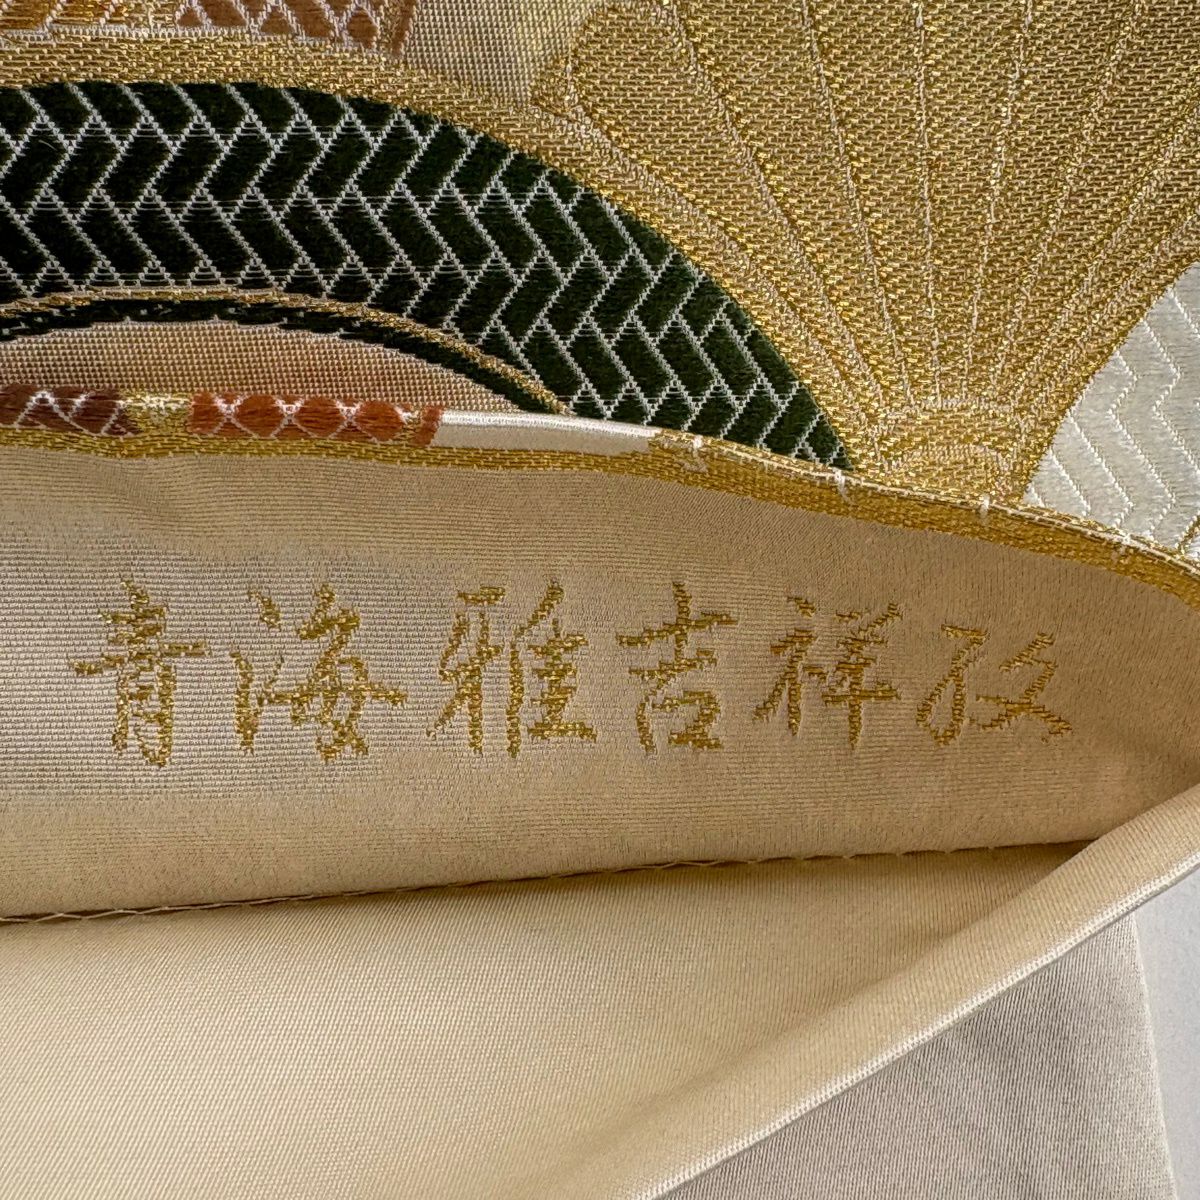 青海雅吉祥紋